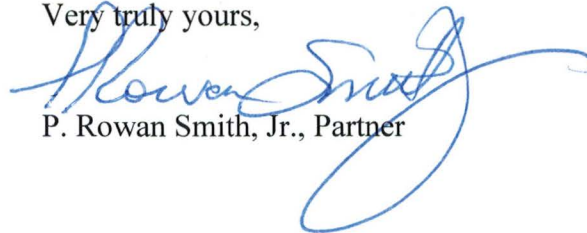 Very truly yours,
P Rowan Smith
P. Rowan Smith, Jr., Partner